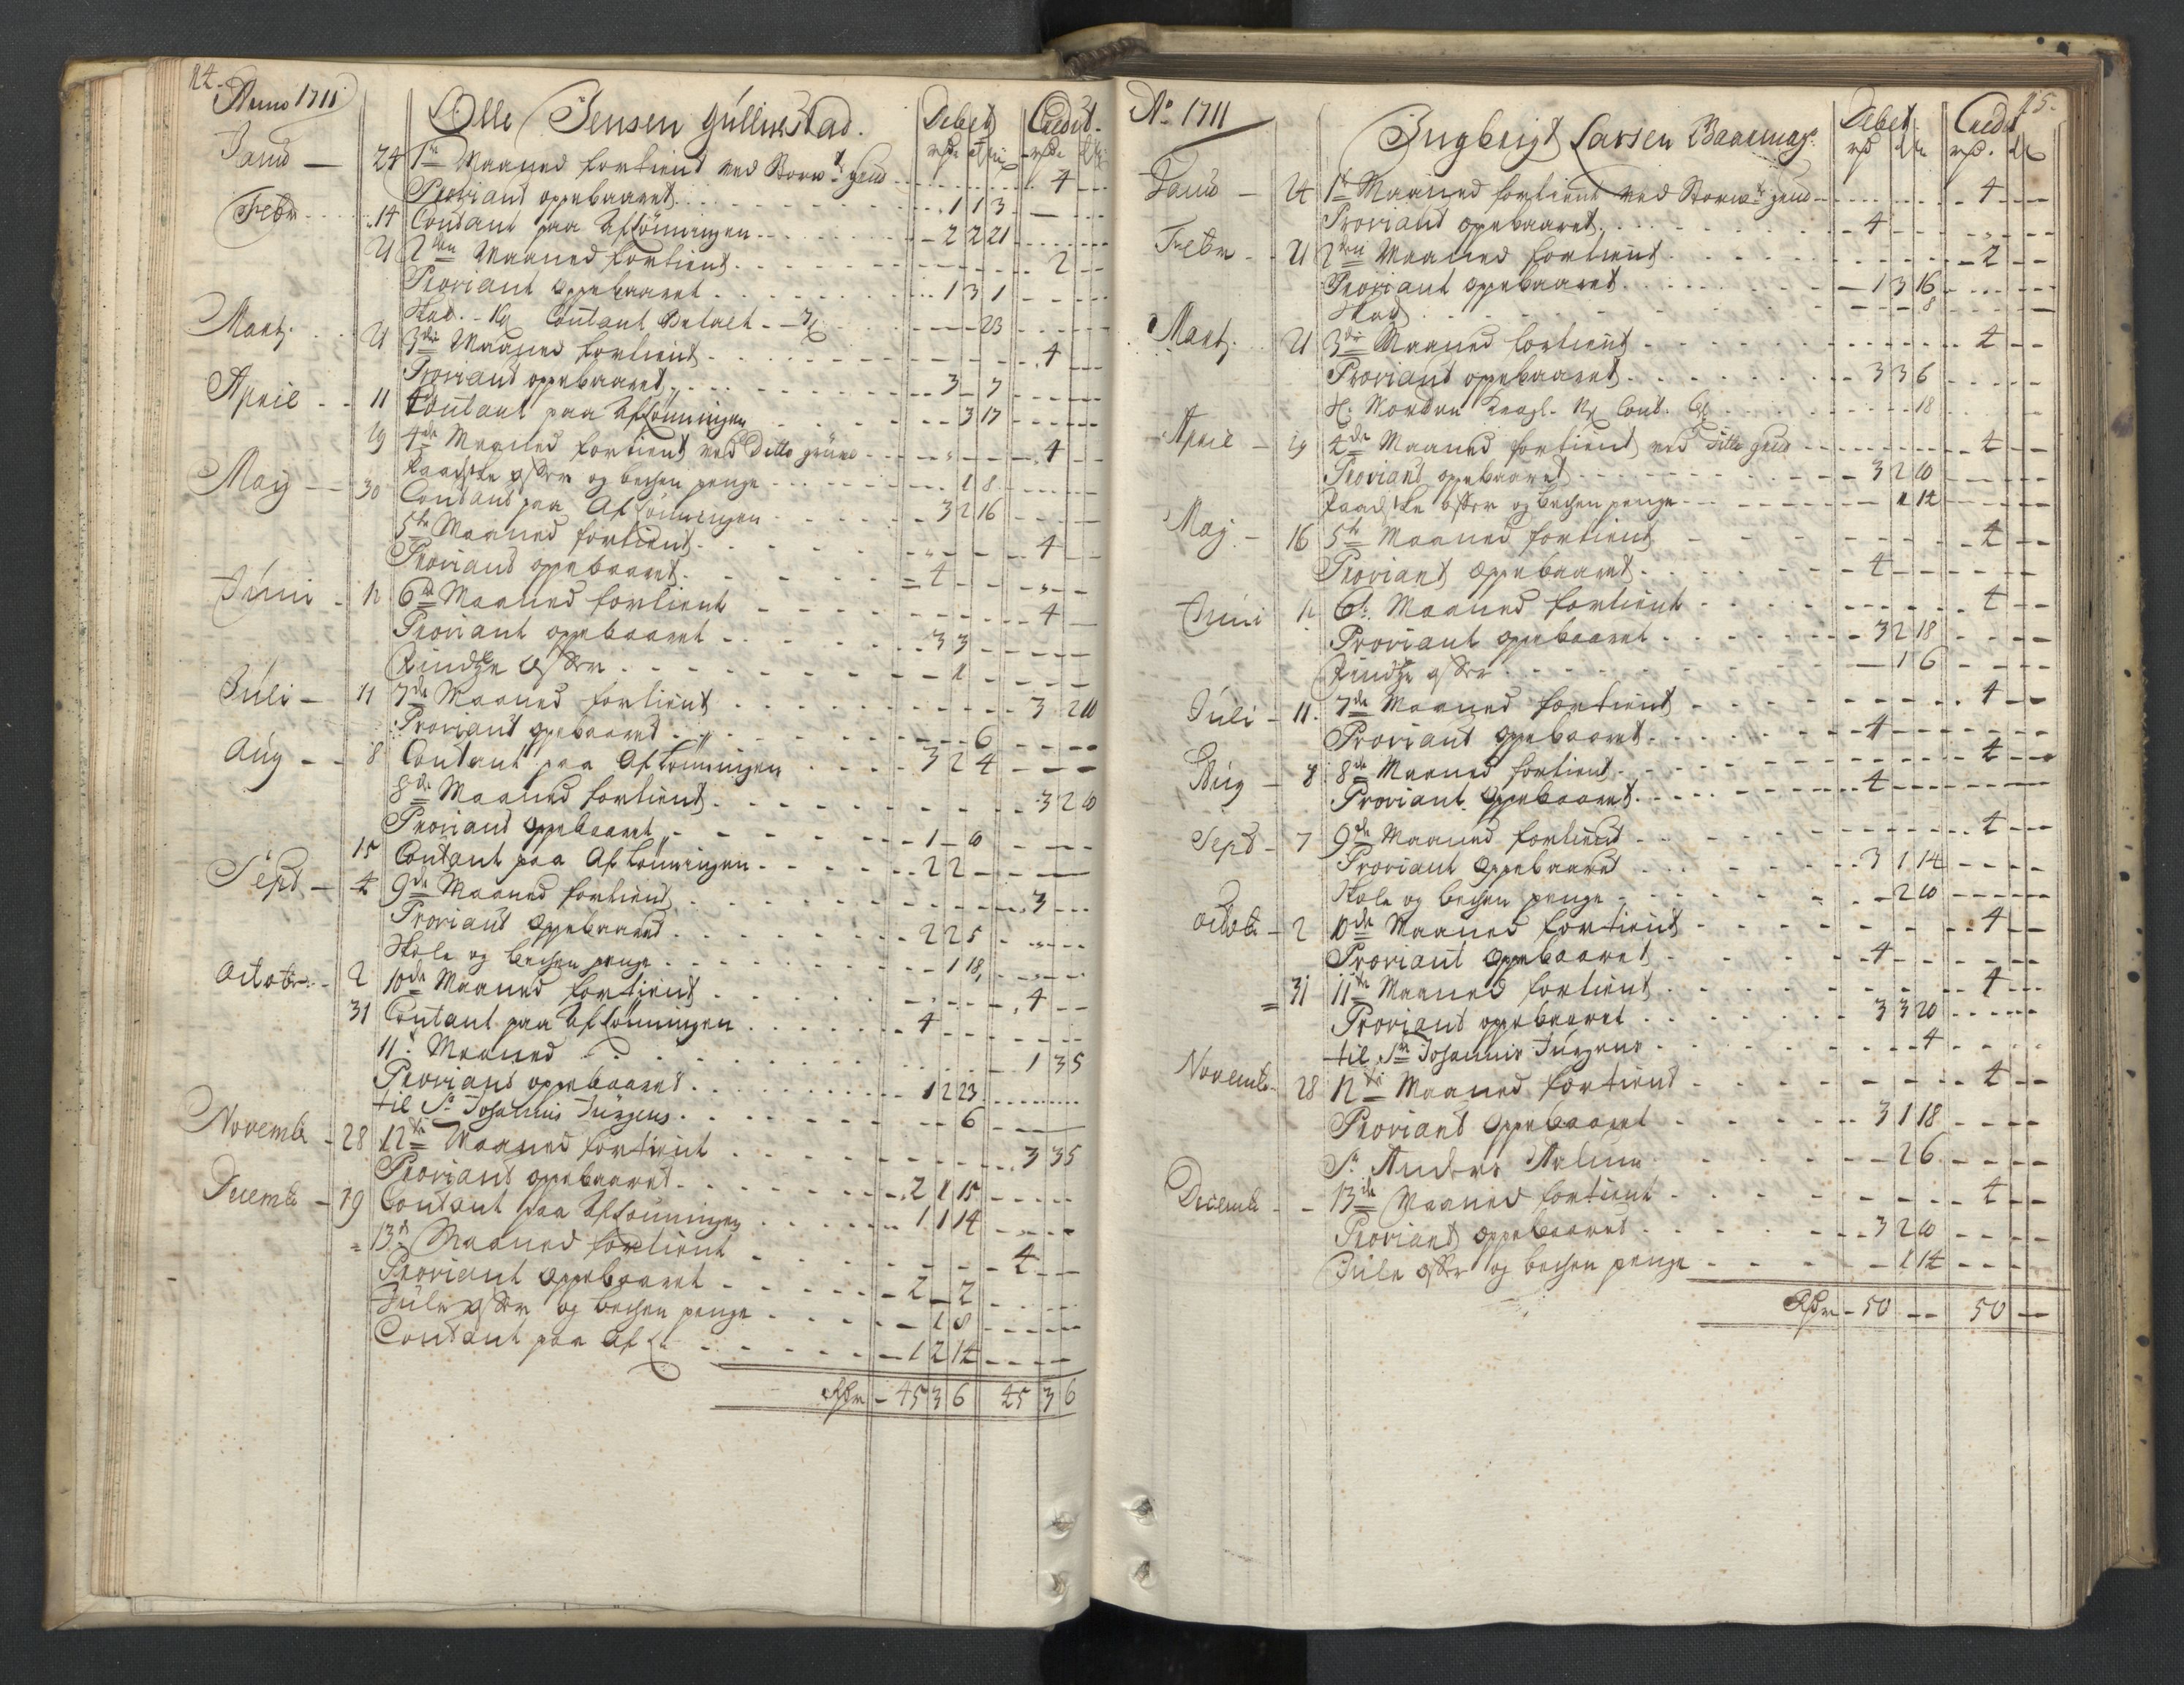 Anno 1711 Olle Jensen Gullinstad. Debet Credit.
Janu — 24 1te Maaned fortient ved Storw: grub 4 — —
Proviant oppebaaret 1 1 3
Febr 14 Contant paa Aflönningen 2 2 21
21 2den Maaned fortient 2 — —
Proviant oppebaaret 1 3 1
Contant Betalt 23
Martj 21 3die Maaned fortient 4
Proviant oppebaaret 3 — 7
April 11 Contant paa Aflönningen 3 17
19 4de Maaned fortient ved Ditto grube 4
Paaske offer og bechen penge 1 8
May — 30 Contant paa Aflönningen 3 2 16
5te Maaned fortient 4
Proviant oppebaaret 4
Juni 12 6te Maaned fortient 4
Proviant oppebaaret 3 3
Pindtze offer 1
Juli — 11 7de Maaned fortient 3 2 10
Proviant oppebaaret 6
Aug — 8 Contant paa Aflönningen 3 2 4
8de Maaned fortient 3 2 10
Proviant oppebaaret 1 — 10
15 Contant paa Aflönningen 2 2
Sept — 4 9de Maaned fortient 3
Proviant oppebaaret 2 2 5
Skole og bechen penge 1 18
Octobr 2 10de Maaned fortient 4
31 Contant paa Aflönningen 4
11te Maaned 1 3 5
Proviant oppebaaret 1 2 23
til Sr Johannis Jurgens 6
Novembr — 28 12te Maaned fortient 3 3 5
Proviant oppebaaret 2 1 15
Decembr — 19 Contant paa Aflönningen 1 1 14
13de Maaned fortient 4
Proviant oppebaaret 2 — 2
Jule offer og bechen penge 1 8
Contant paa Afl 1 2 14
45 3 6 45 3 6
15.
Ao 1711 Ingbrigt Larsen Debet Credit
Janu — 24 1te Maaned fortient ved Storw: grub 4
Proviant oppebaaret 4
Febr 21 2den Maaned fortient 2
Proviant oppebaaret 1 3 16
8
Martj 21 3die Maaned fortient 4
Proviant oppebaaret 3 3 6
18
April — 19 4de Maaned fortient ved Ditto grub 4
Proviant oppebaaret 3 2 10
Paaske offer og bechen penge 1 14
Maj — 16 5te Maaned fortient 4
Proviant oppebaaret 4
Juni 12 6te Maaned fortient 4
Proviant oppebaaret 3 2 18
Pindtze offer 1 6
Juli — 11 7de Maaned fortient 4
Proviant oppebaaret 4
Aug — 8 8de Maaned fortient 4
Proviant oppebaaret 4
Sept — 7 9de Maaned fortient 4
Proviant oppebaaret 3 1 14
Skole og bechen penge 2 10
Octobr — 2 10de Maaned fortient 4
Proviant oppebaaret 4
31 11te Maaned fortient 4
Proviant oppebaaret 3 3 20
til Sr Johannis Jurgens 4
Novembr — 28 12te Maaned fortient 4
Proviant oppebaaret 3 1 18
Sr Anders 2 6
Decembr — 13de Maaned fortient 4
Proviant oppebaaret 3 2 10
Jule offer og bechen penge 1 14
50 — — 50 —